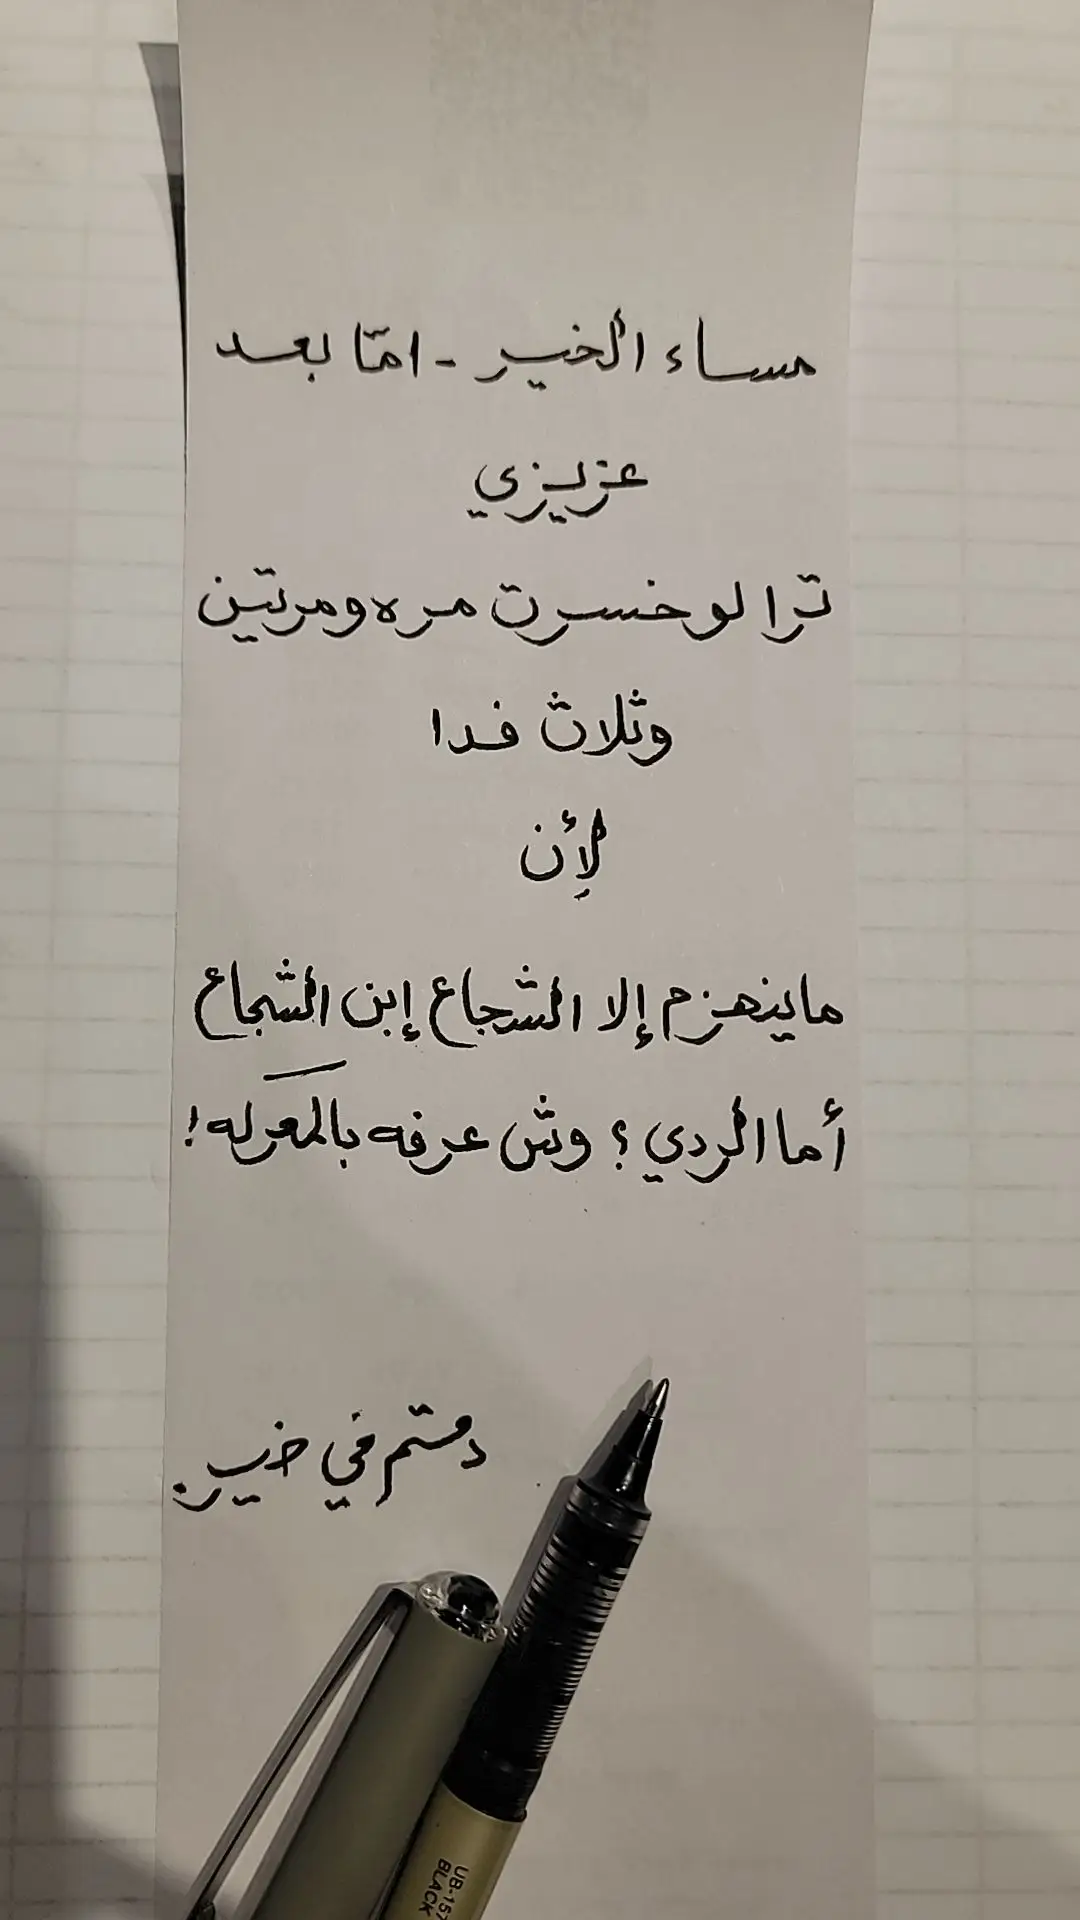 مساء الخير - امّا بعد
عزيزي
ترا لو خسرت مره ومرتين
وثلاث فدا
لأن
ماينهزم إلا الشجاع إبن الشجاع
أما الردي؟ وش عرفه بالمعركه!
دمتم في خير.
UB-157
BLACK